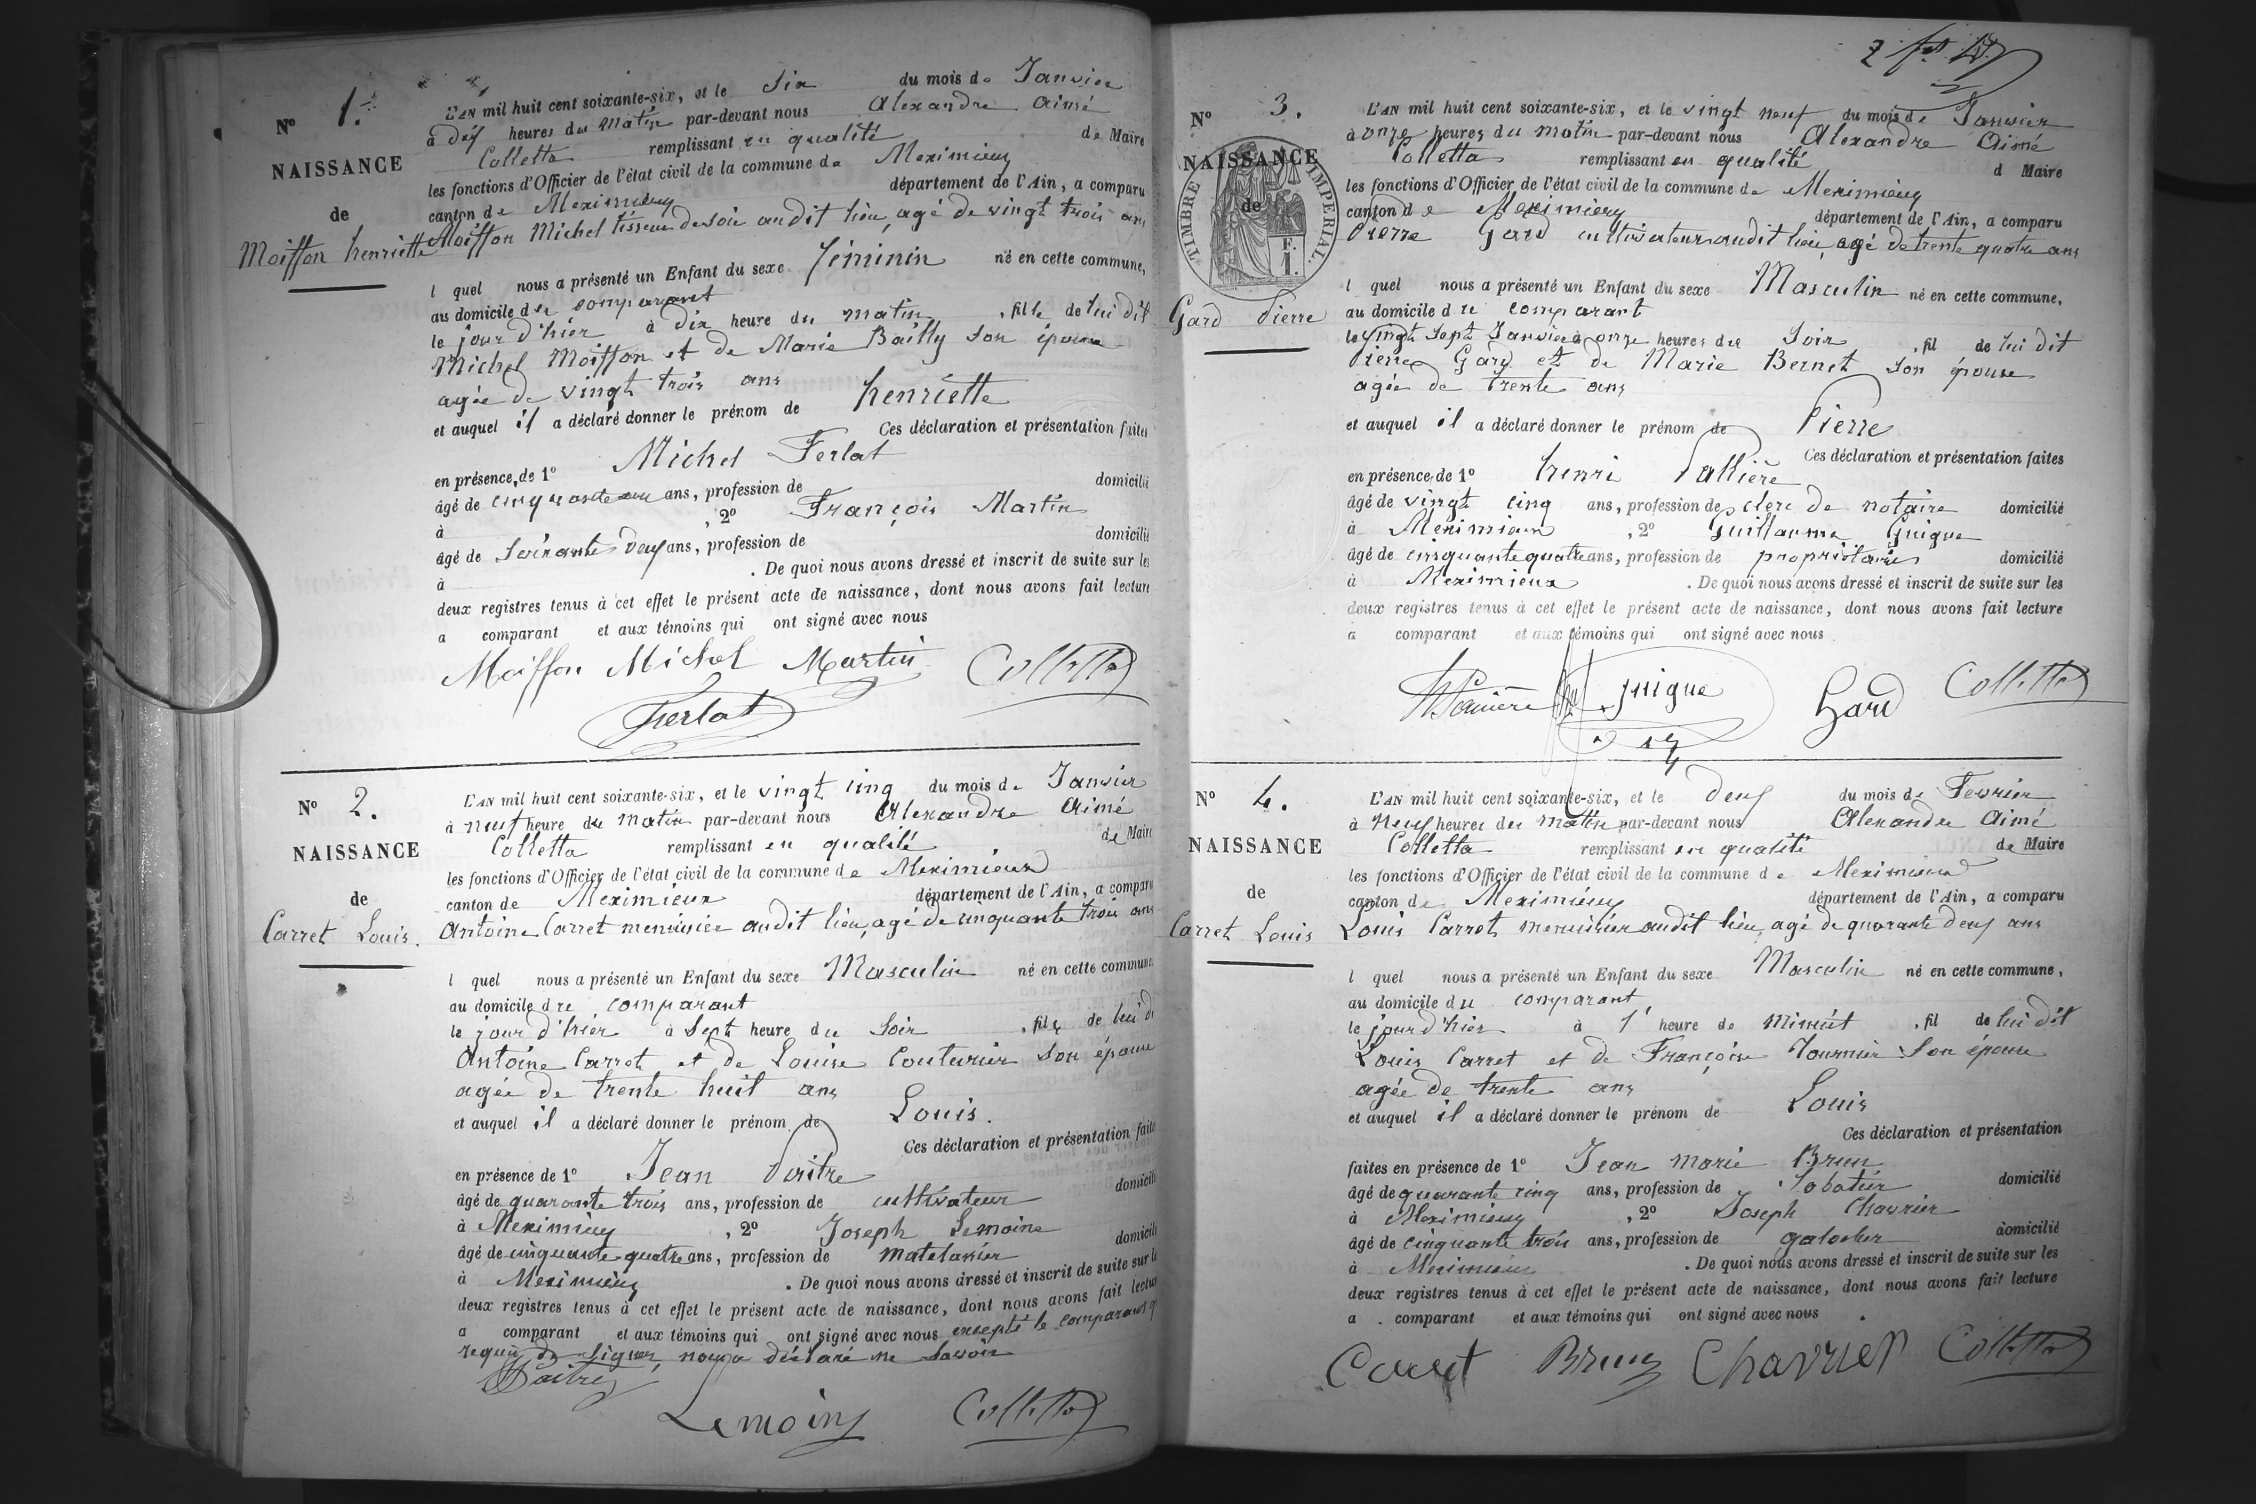 N° 1.
NAISSANCE
de
Moiffon henriette
L'AN mil huit cent soixante-six, et le Six du mois de Janvier
à dix heures du matin par-devant nous Alexandre Aimé
Colletta remplissant en qualité de Maire
les fonctions d'Officier de l'état civil de la commune de Meximieux
canton de Meximieux département de l'Ain, a comparu
Moiffon Michel tisseur de soie audit lieu, agé de vingt trois ans
l quel nous a présenté un Enfant du sexe féminin né en cette commune,
au domicile du comparant
le jour d'hier à dix heure du matin, fille de lui dit
Michel Moiffon et de Marie Bailly son épouse
agée de vingt trois ans
et auquel il a déclaré donner le prénom de henriette
Ces déclaration et présentation faites
en présence de 1° Michel Ferlat
âgé de cinquante ans, profession de domicilié
à , 2° François Martin
âgé de soixante deux ans, profession de domicilié
à . De quoi nous avons dressé et inscrit de suite sur les
deux registres tenus à cet effet le présent acte de naissance, dont nous avons fait lecture
a comparant et aux témoins qui ont signé avec nous
Moiffon Michel Martin Colletta
Ferlat
N° 2.
NAISSANCE
de
Carret Louis.
L'AN mil huit cent soixante-six, et le vingt cinq du mois de Janvier
à neuf heure du matin par-devant nous Alexandre Aimé
Colletta remplissant en qualité de Maire
les fonctions d'Officier de l'état civil de la commune de Meximieux
canton de Meximieux département de l'Ain, a comparu
Antoine Carret menuisier audit lieu, agé de cinquante trois ans
l quel nous a présenté un Enfant du sexe Masculin né en cette commune
au domicile du comparant
le jour d'hier à Sept heure du Soir, fils de lui dit
Antoine Carret et de Louise Couturier son épouse
agée de trente huit ans
et auquel il a déclaré donner le prénom de Louis.
Ces déclaration et présentation faites
en présence de 1° Jean Paitre
âgé de quarante trois ans, profession de cultivateur domicilié
à Meximieux, 2° Joseph Lemoine
âgé de cinquante quatre ans, profession de matelassier domicilié
à Meximieux. De quoi nous avons dressé et inscrit de suite sur les
deux registres tenus à cet effet le présent acte de naissance, dont nous avons fait lecture
a comparant et aux témoins qui ont signé avec nous excepté le comparant qui
requis de signer, nous a déclaré ne savoir
Paitre
Lemoine Colletta
N° 3.
NAISSANCE
de
TIMBRE IMPERIAL
F.
1.
Gard Pierre
L'AN mil huit cent soixante-six, et le vingt neuf du mois de Janvier
à onze heures du matin par-devant nous Alexandre Aimé
Colletta remplissant en qualité d Maire
les fonctions d'Officier de l'état civil de la commune de Meximieux
canton de Meximieux département de l'Ain, a comparu
Pierre Gard cultivateur audit lieu, agé de trente quatre ans
l quel nous a présenté un Enfant du sexe Masculin né en cette commune,
au domicile du comparant
le vingt Sept Janvier à onze heures du Soir, fil de lui dit
Pierre Gard et de Marie Bernet son épouse
agée de trente ans
et auquel il a déclaré donner le prénom de Pierre
Ces déclaration et présentation faites
en présence de 1° henri Pallière
âgé de vingt cinq ans, profession de clerc de notaire domicilié
à Meximieux, 2° Guillaume Guigue
âgé de cinquante quatre ans, profession de propriétaire domicilié
à Meximieux. De quoi nous avons dressé et inscrit de suite sur les
deux registres tenus à cet effet le présent acte de naissance, dont nous avons fait lecture
a comparant et aux témoins qui ont signé avec nous
guigue Gard Colletta
N° 4.
NAISSANCE
de
Carret Louis
L'AN mil huit cent soixante-six, et le deux du mois de Fevrier
à neuf heures du matin par-devant nous Alexandre Aimé
Colletta remplissant en qualité de Maire
les fonctions d'Officier de l'état civil de la commune de Meximieux
canton de Meximieux département de l'Ain, a comparu
Louis Carret menuisier audit lieu, agé de quarante deux ans
l quel nous a présenté un Enfant du sexe Masculin né en cette commune,
au domicile du comparant
le jour d'hier à 1 heure de Minuit, fil de lui dit
Louis Carret et de Françoise Tournier son épouse
agée de trente ans
et auquel il a déclaré donner le prénom de Louis
Ces déclaration et présentation
faites en présence de 1° Jean marie Brun
âgé de quarante cinq ans, profession de Sabotier domicilié
à Meximieux, 2° Joseph Chavrier
âgé de cinquante trois ans, profession de galocher domicilié
à Meximieux. De quoi nous avons dressé et inscrit de suite sur les
deux registres tenus à cet effet le présent acte de naissance, dont nous avons fait lecture
a comparant et aux témoins qui ont signé avec nous
Carret Brun Chavrier Colletta